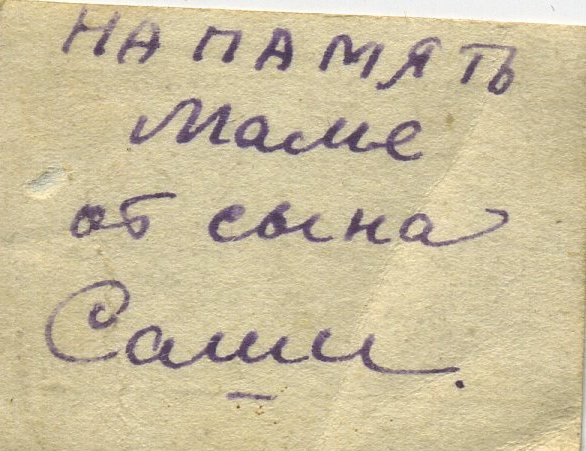 НА ПАМЯТЬ
Маме
от сына
Саши.